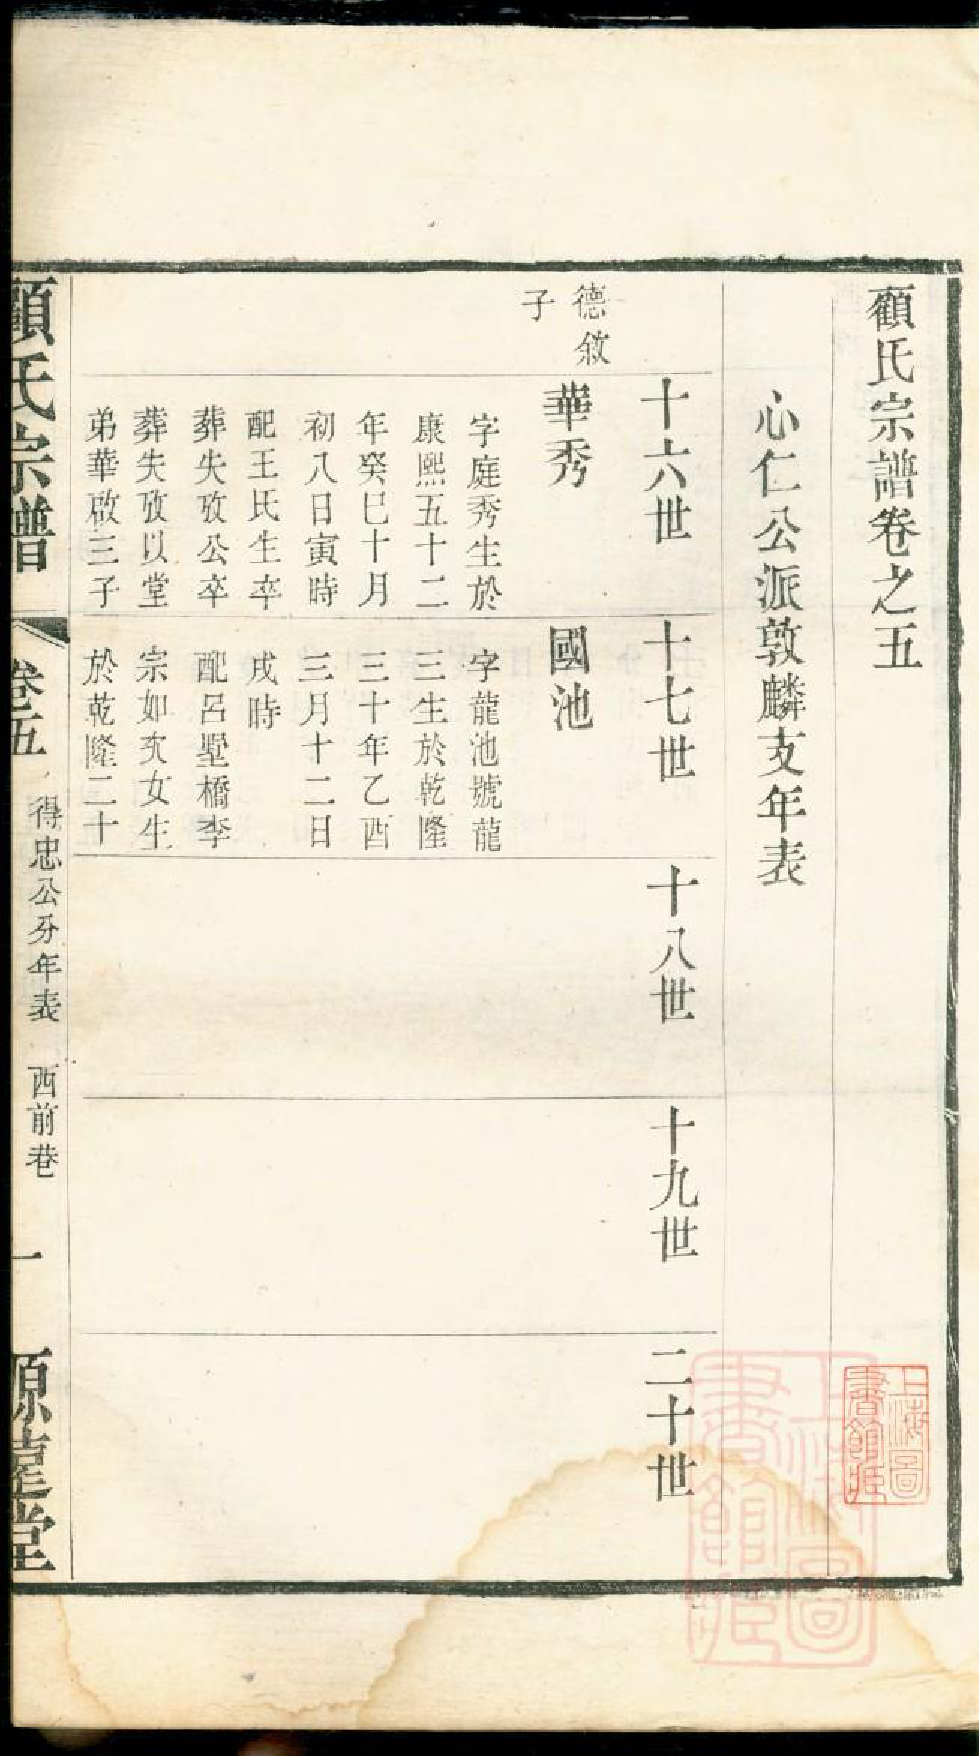 顧氏宗譜卷之五
心仁公派敦麟支年表
十六世
十七世
十八世
十九世
二十世
德敘
子
華秀
字庭秀生於
康熙五十二
年癸巳十月
初八日寅時
配王氏生卒
葬失攷公卒
葬失攷以堂
弟華啟三子
國池
字龍池號龍
三生於乾隆
三十年乙酉
三月十二日
戌時
配呂墅橋李
宗如次女生
於乾隆二十
顧氏宗譜
卷五
得忠公分年表
西前巷
一
源遠堂
上海圖
書館藏
上海圖
書館藏